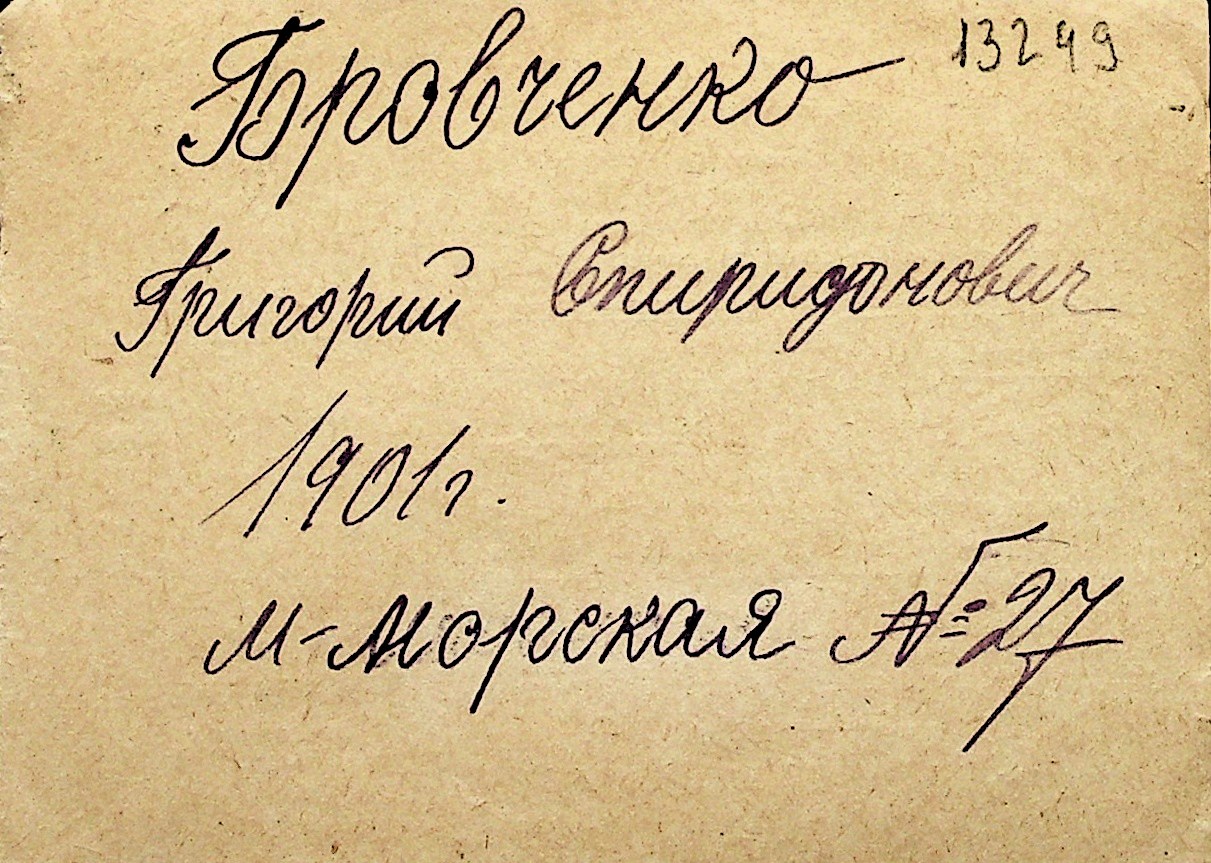 Бровченко 13249
Григорий Спиридонович
1901г.
М-Морская №27